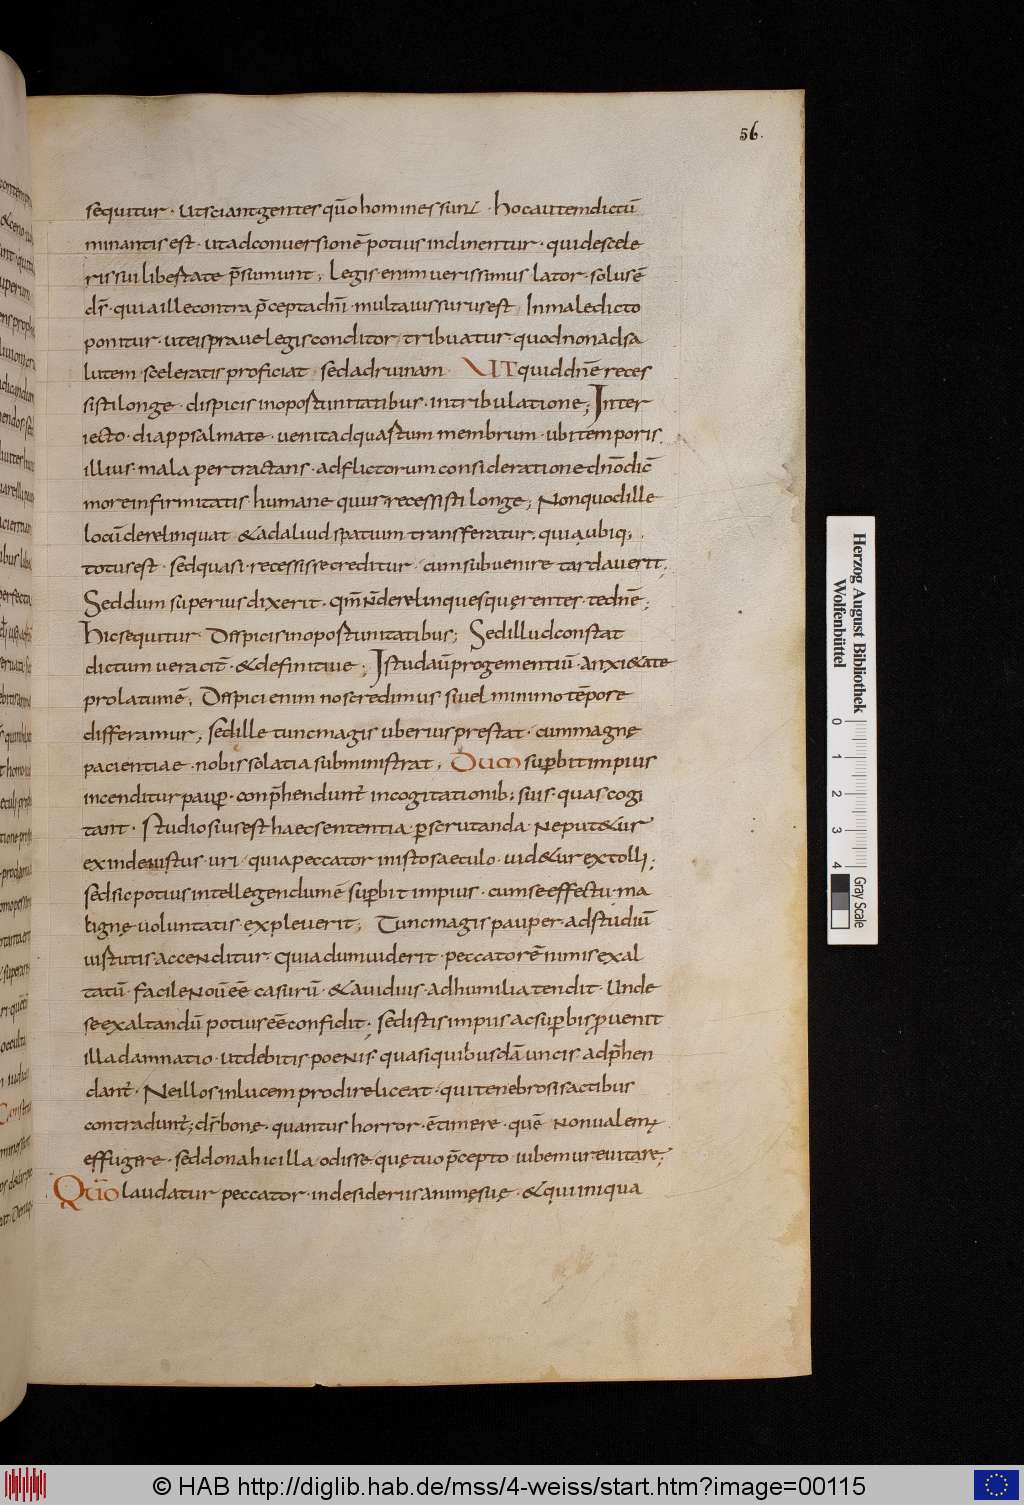 56.
sequitur · Ut sciant gentes qūo homines sunt · hoc autem dictū
minantis est · ut ad conuersionē potius inclinentur · qui de scele
ris sui libertate p̄sumunt; Legis enim uerissimus lator · solus ē
dn̄s · quia ille contra p̄cepta dn̄i · multa uissurus est / In maledicto
ponitur · ut eis praue legis conditor / tribuatur quod non ad sa
lutem sceleratis proficiat · sed ad ruinam · UT quid dn̄e reces
sisti longe · dispicis in oportunitatibus · in tribulatione; Inter
iecto · diapsalmate · uenit ad quartum membrum · ubi temporis
illius · mala pertractans · adflictorum consideratione dn̄o dic̄
more infirmitatis humane quur recessisti longe; Non quod ille
locū derelinquat & ad aliud spatium transferatur, qui ubiq;
totus est · sed quasi recessisse creditur · cum subuenire tardauerit;
Sed dum superius dixerit · qm̄ n̄ derelinques quęrentes te dn̄e;
hic sequitur Dispicis in oportunitatibus; Sed illud constat
dictum ueracit̄ · & definitiue; Istud aū progementiū · anxi&ate
prolatum ē; Dispici enim nos credimus si uel minimo tēpore
differamur; sed ille tunc magis uberius prestat · cum magnę
pacientiae · nobis solatia subministrat; Dum sup̄bit impius
incenditur paup̄ · conp̄hendunt̄ in cogitationib; suis · quas cogi
tant · Studiosius est haec sententia p̄scrutanda · Ne put&ur
exinde iustus · uri / quia peccator in isto saeculo · uid&ur extolli;
sed sic potius intellegendum ē sup̄bit impius · cum se effectu ma
lignę uoluntatis · expleuerit; Tunc magis pauper · ad studiū
uirtutis accenditur · Quia dum uiderit · peccatorē nimis exal
tatū · facile nou ēē casurū · & auidius · ad humilia tendit · Unde
se exaltandū potius ēē confidit · sed istis impiis ac sup̄bis p̄uenit
illa damnatio · ut debitis poenis · quasi quibusdā uncis · adp̄hen
dant̄ · Ne illos in lucem prodire liceat · qui tenebrosis actibus
contradunt̄; dn̄s bonę · quantus horror · ē timere · quē non ualem;
effugere · sed dona hic illa / odisse quę tuo p̄cepto iubemur euitare;
Qūo laudatur peccator · in desideriis animę suę · & qui iniqua
Herzog August Bibliothek
Wolfenbüttel
0 1 2 3 4
Gray Scale
© HAB http://diglib.hab.de/mss/4-weiss/start.htm?image=00115